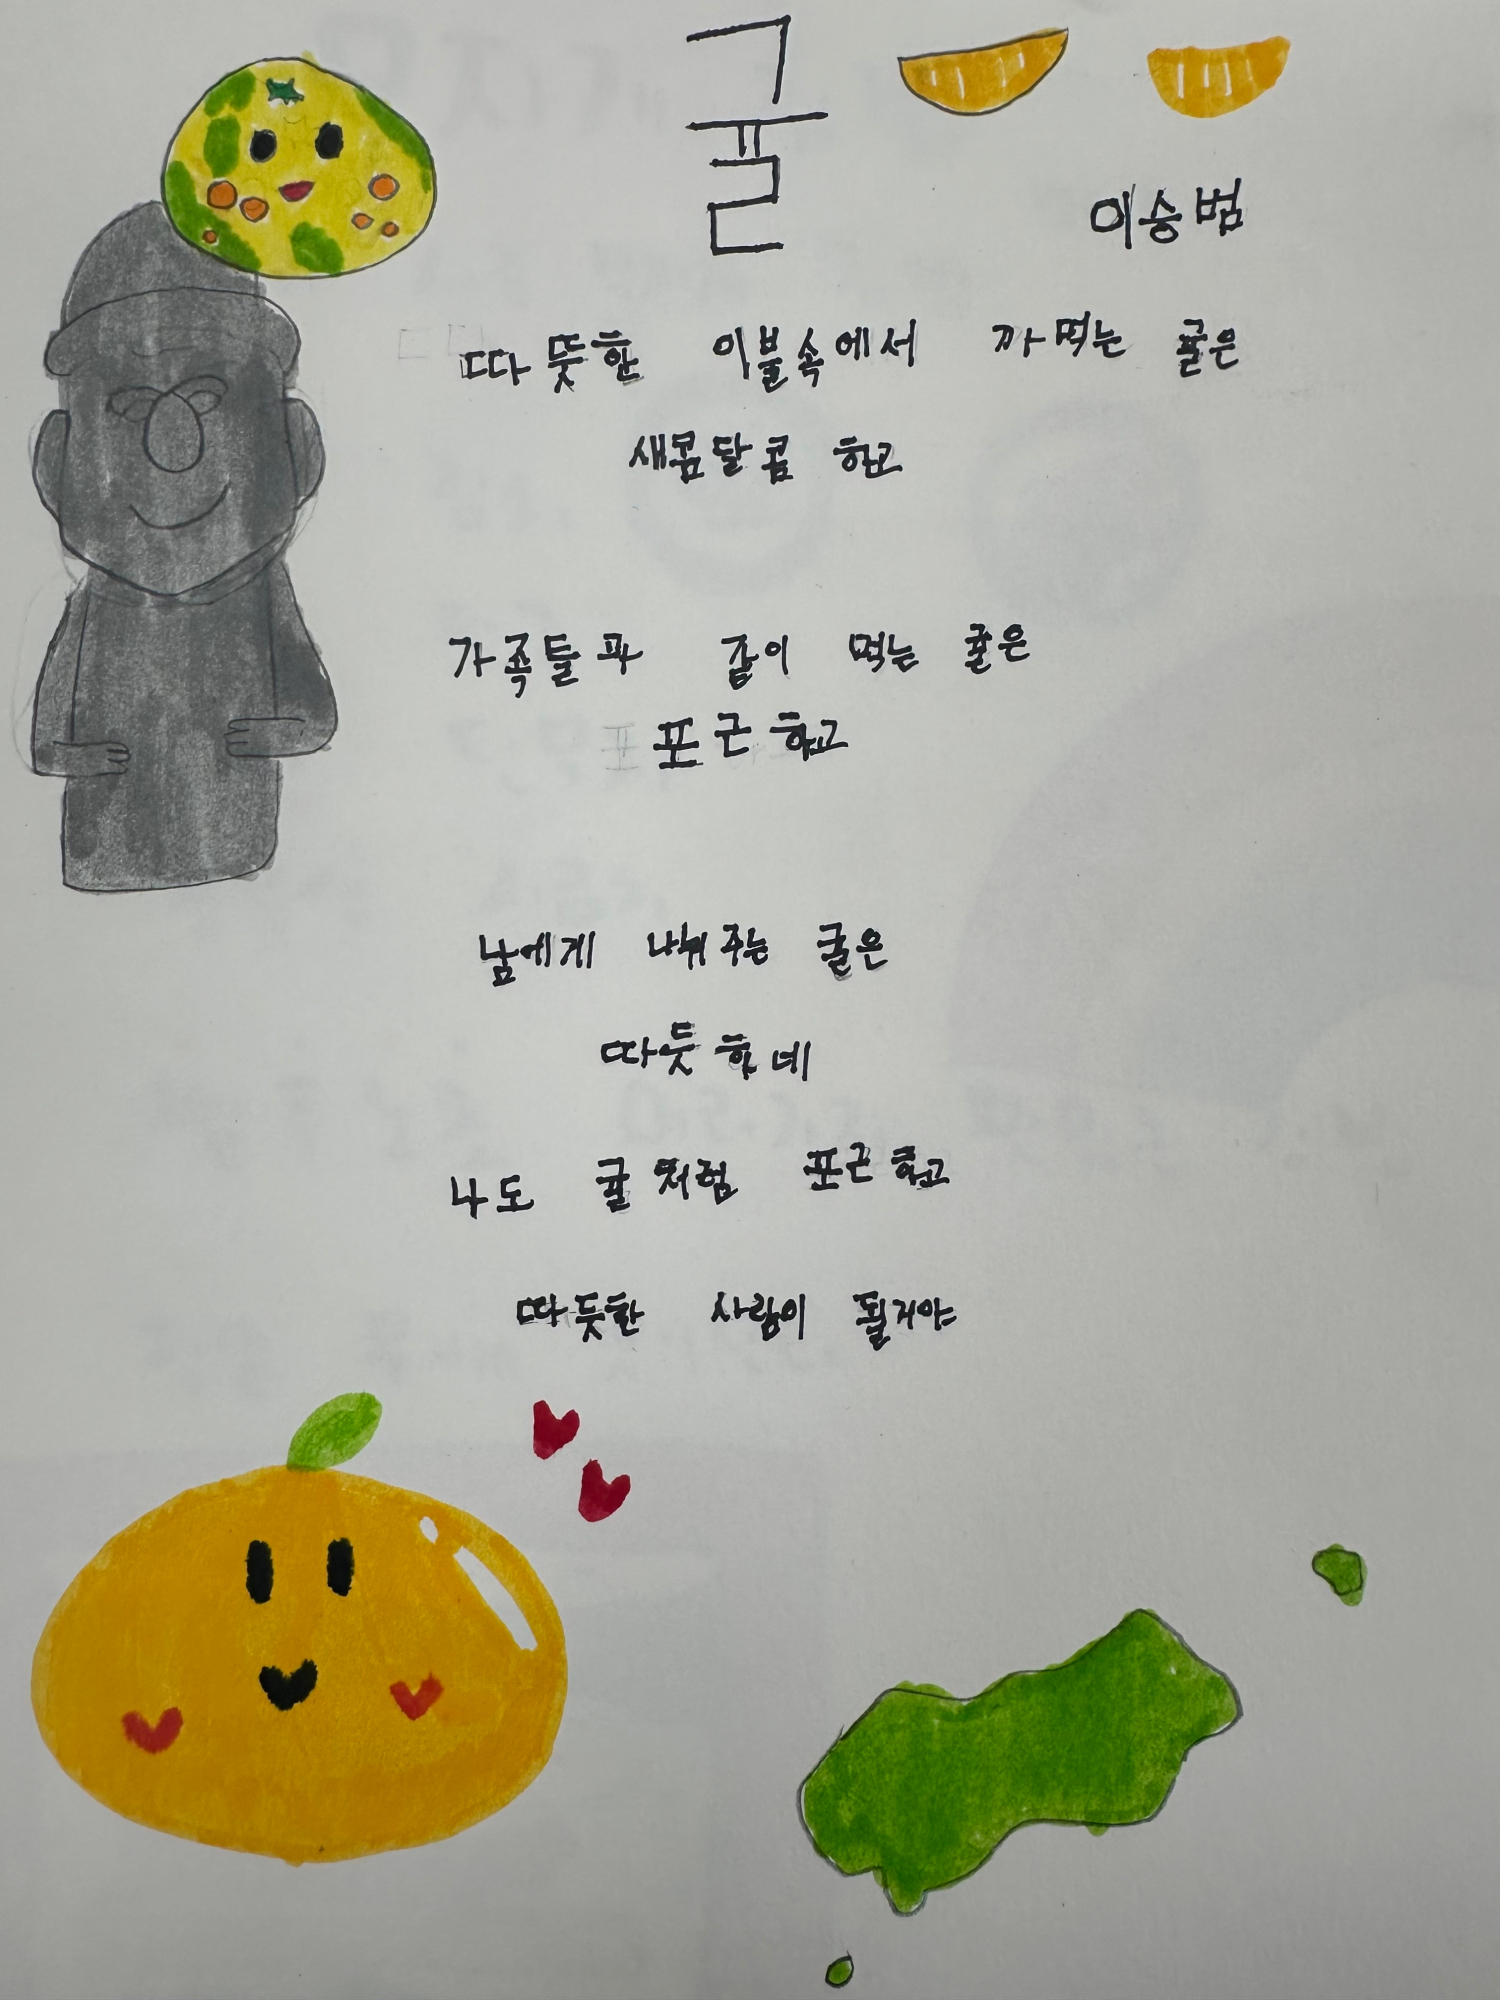 귤
이승범
따뜻한 이불속에서 까먹는 귤은
새콤달콤 하고
가족들과 같이 먹는 귤은
포근하고
남에게 나눠주는 귤은
따듯하네
나도 귤처럼 포근하고
따듯한 사람이 될거야